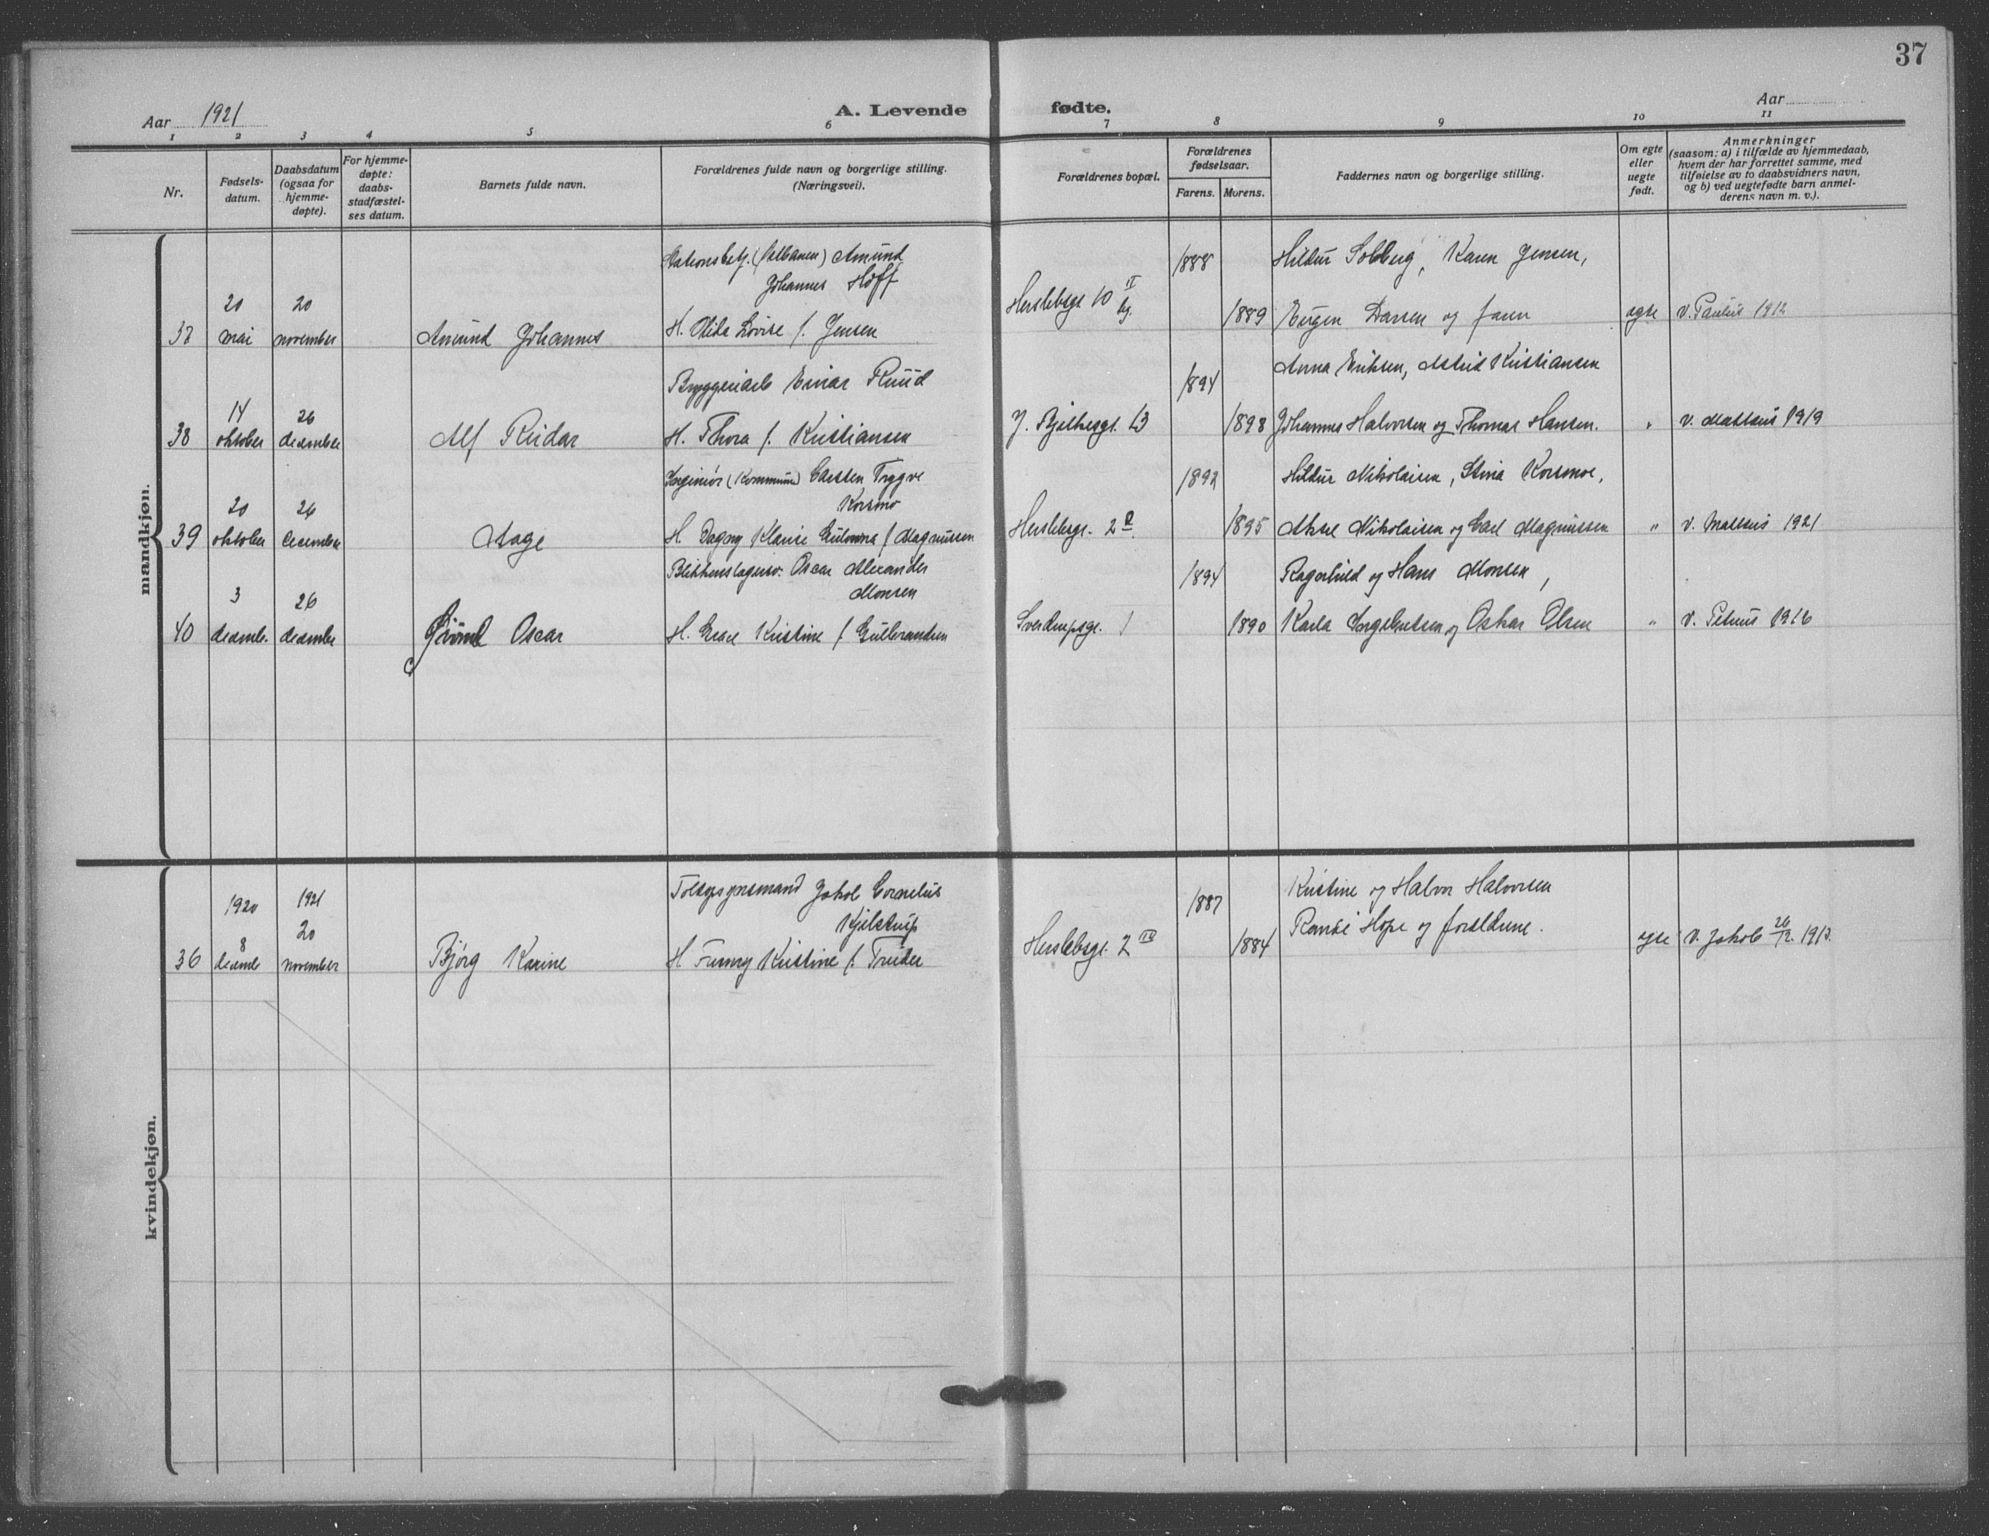 37
Aar 1921
A. Levende fødte.
Aar
1 2 3 4 5 6 7 8 9 10 11
Nr.
Fødsels-
datum.
Daabsdatum
(ogsaa for
hjemme-
døpte).
For hjemme-
døpte:
daabs-
stadfæstel-
ses datum.
Barnets fulde navn.
Forældrenes fulde navn og borgerlige stilling.
(Næringsvei).
Forældrenes bopæl.
Forældrenes
fødselsaar.
Farens. Morens.
Faddernes navn og borgerlige stilling.
Om egte
eller
uegte
født.
Anmerkninger
(saasom: a) i tilfælde av hjemmedaab,
hvem der har forrettet samme, med
tilføielse av to daabsvidners navn,
og b) ved uegtefødte barn anmel-
derens navn m. v.).
mandkjøn.
Stationsbetj. Amund
Johannes Hoff
1888
Hildur Solberg, Karen Jensen,
20 20
mai november
Amund Johannes
H. Lovise f. Jensen
Herslebsgt 10
1889
Eugen Larsen og faren
egte
v. Paulus 1912
Bryggeriarb Einar Ruud
1894
Anna Eriksen, Astrid Kristiansen
14 26
38 oktober desember
Alf Reidar
H. Thora f. Kristiansen
13
1898
Johannes Halvorsen og Thomas Hansen.
"
v. Matteus 1919
Ingeniør (Kommune) Carsten Trygve
Korsmo
1892
Hildur Nikolaisen, Stina Korsmoe,
20 26
39 oktober desember
Aage
H. Dagny f Magnussen
Herslebsgt. 2
1895
Nikolaisen og Carl Magnussen
"
v. Matteus 1921
Blikkenslagersv. Oscar Alexander
Monsen
1894
Ragnhild og Hans Monsen,
3 26
40 desemb. desember
Oscar
H. Kristine f Gulbrandsen
Sverdrupsgt. 1
1890
Karla Ingebretsen og Oskar Olsen
"
v. Petrus 1916
kvindekjøn.
Jakob Cornelius
Kjelstrup
1887
Kristine og Halvor Halvorsen
1920 1921
8 20
36 desemb november
Bjørg Karine
H Kristine f.
Herslebsgt. 2
1884
Hope og forældrene.
egte
v. Jakob 26/12